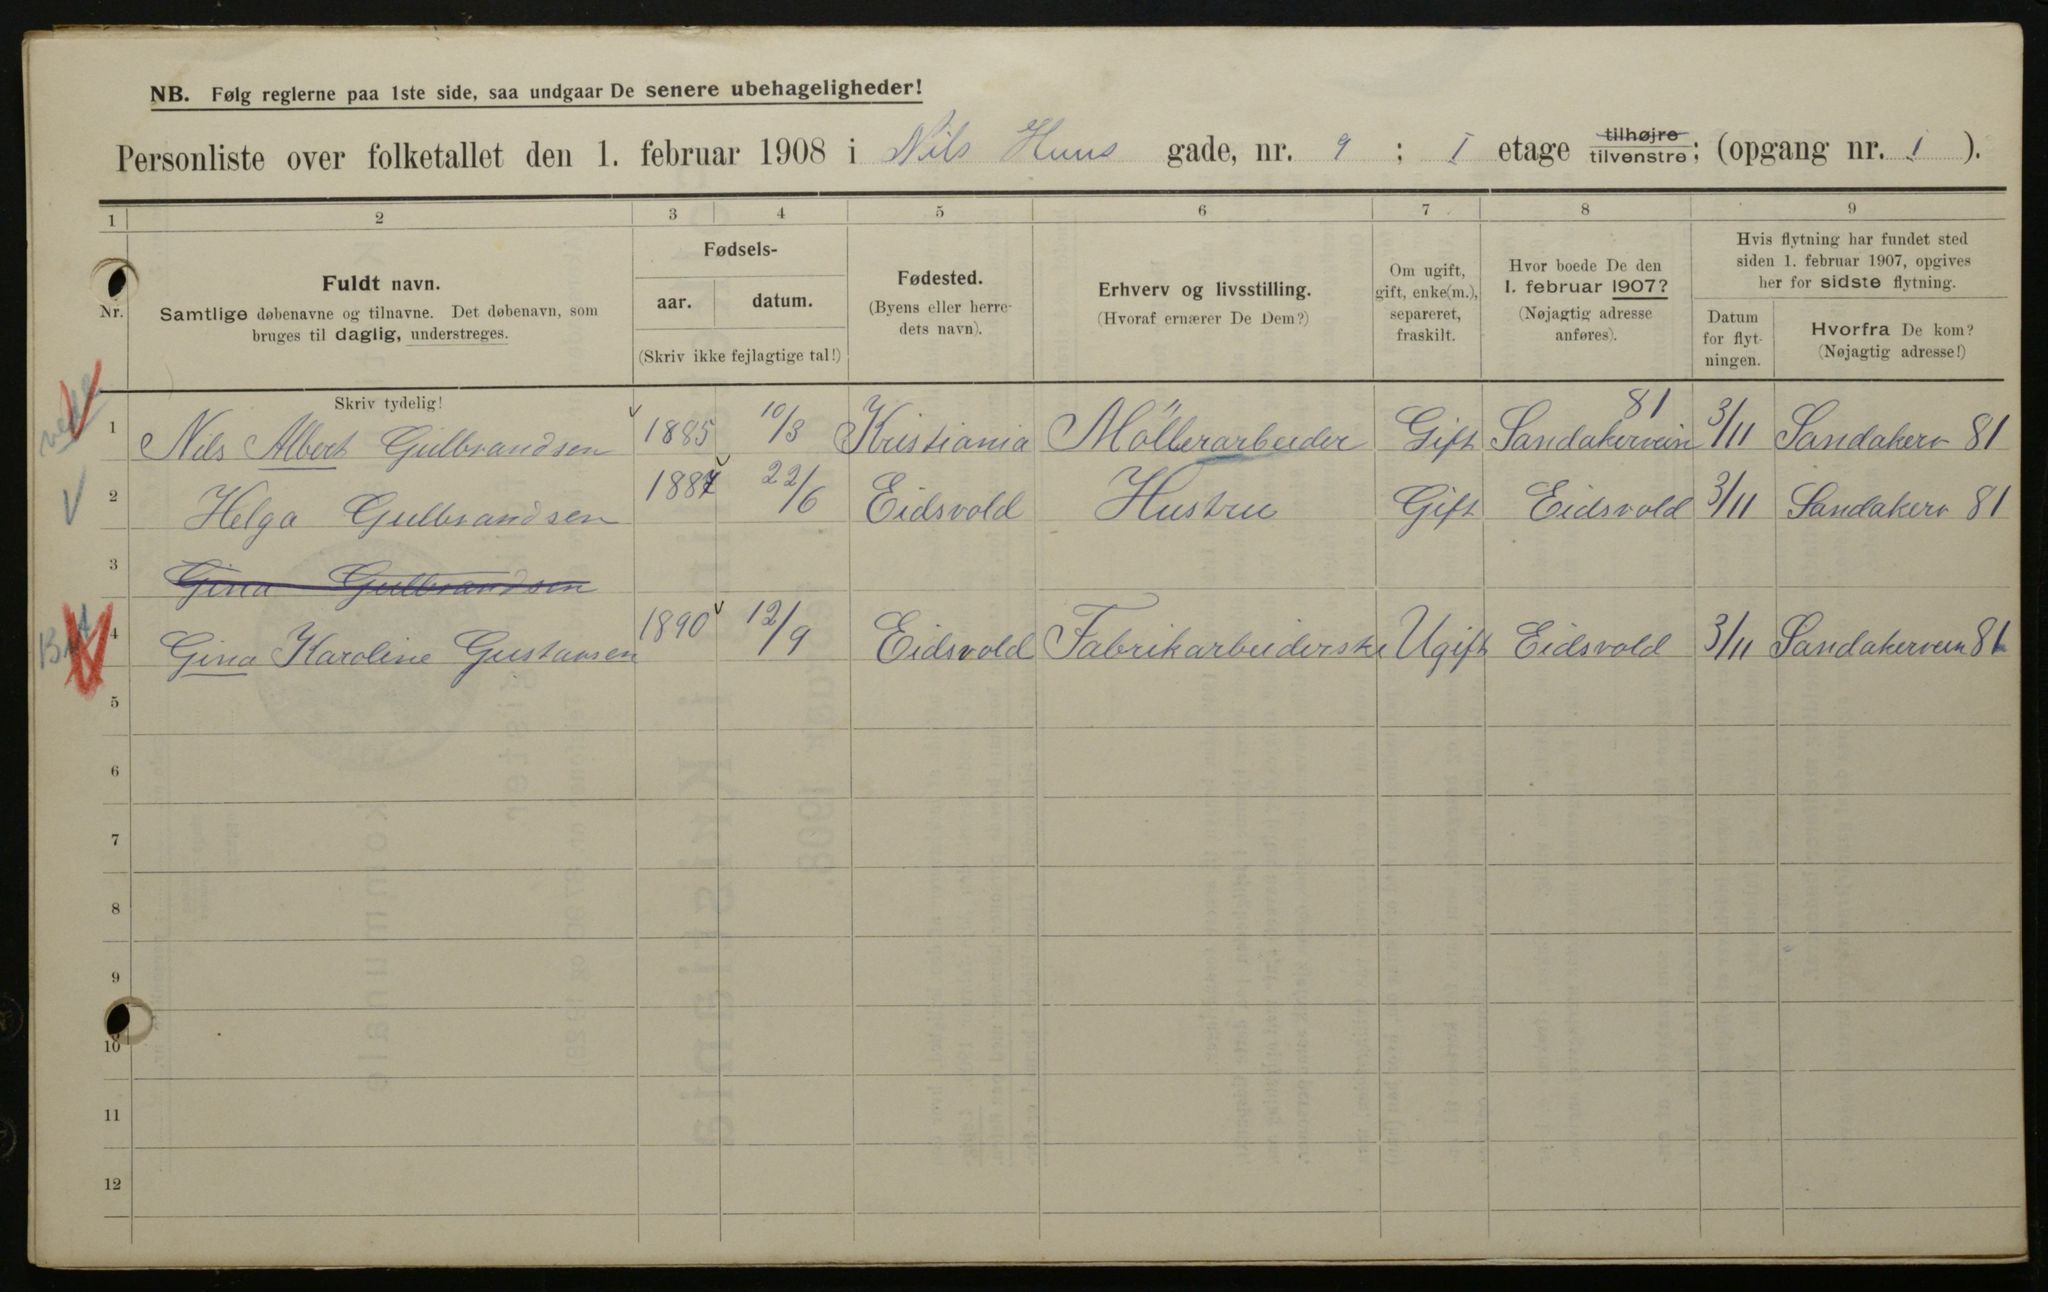 NB. Følg reglerne paa 1ste side, saa undgaar De senere ubehageligheder!
Personliste over folketallet den 1. februar 1908 i Nils Huus gade, nr. 9 ; I etage tilhøjre tilvenstre; (opgang nr. 1 ).
1 2 3 4 5 6 7 8 9
Nr.
Fuldt navn.
Samtlige døbenavne og tilnavne. Det døbenavn, som
bruges til daglig, understreges.
Fødsels-
aar. datum.
(Skriv ikke fejlagtige tal!)
Fødested.
(Byens eller herre-
dets navn).
Erhverv og livsstilling.
(Hvoraf ernærer De Dem?)
Om ugift,
gift, enke(m.),
separeret,
fraskilt.
Hvor boede De den
1. februar 1907?
(Nøjagtig adresse
anføres).
Hvis flytning har fundet sted
siden 1. februar 1907, opgives
her for sidste flytning.
Datum
for flyt-
ningen.
Hvorfra De kom?
(Nøjagtig adresse!)
Skriv tydelig!
1 Nils Albert Gulbrandsen 1885 10/3 Kristiania Möllerarbeider Gift Sandakervein 81 3/11 Sandakerv 81
2 Helga Gulbrandsen 1887 22/6 Eidsvold Hustru Gift Eidsvold 3/11 Sandakerv 81
3 Gina Gulbrandsen
4 Gina Karoline Gustavsen 1890 12/9 Eidsvold Fabrikarbeiderske Ugift Eidsvold 3/11 Sandakervein 81
5
6
7
8
9
10
11
12